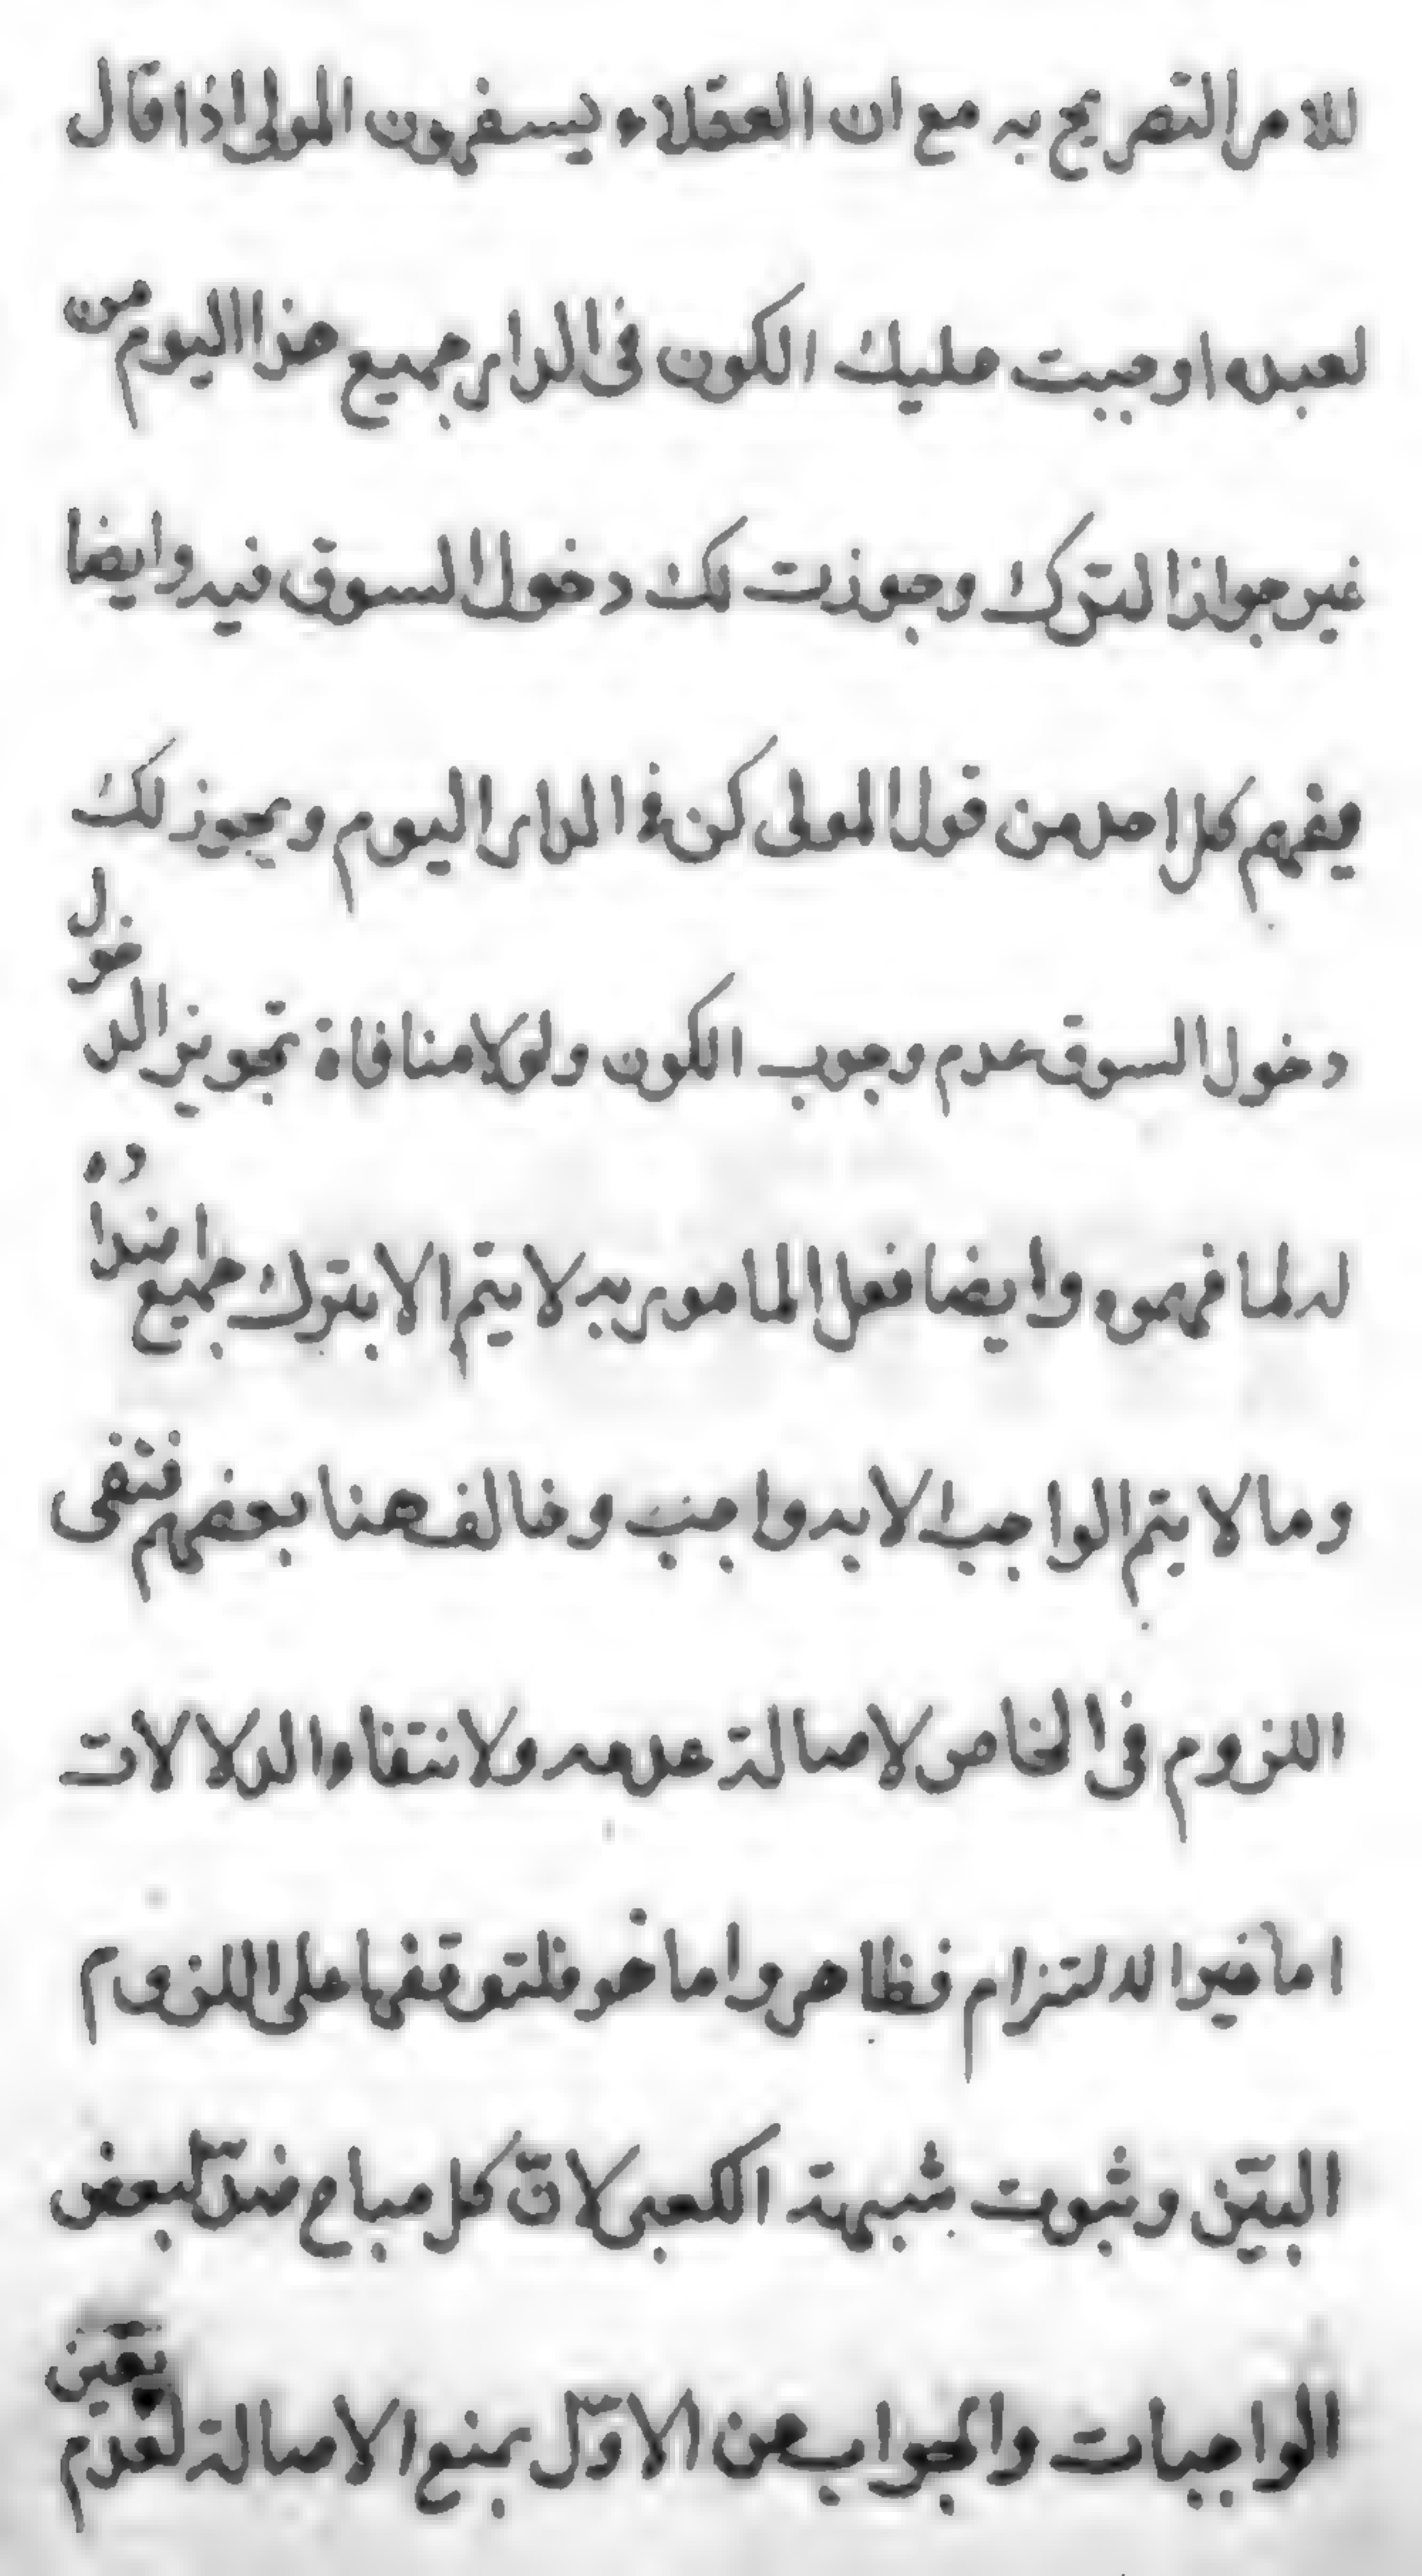 للامر التصريح به مع ان العقلاء يسفرون المولى اذا قال
لعبده اوجبت عليك الكون فى الدار جميع هذا اليوم من
غير جواز الترك وجوزت لك دخول السوق فيه وايضا
يفهم كل احد من قول المولى كن فى الدار اليوم ويجوز لك
دخول السوق عدم وجوب الكون ولولا منافاة تجويز الدخول
له لما فهموه وايضا فعل المامور به لا يتم الا بترك جميع اضداده
وما لا يتم الواجب الا به واجب وخالف هنا بعضهم فنفى
اللزوم فى الخاص لاصالة عدمه ولانتفاء الدلالات
اما غير الالتزام فظاهر واما هو فلتوقفها على اللزوم
البيّن وثبوت شبهة الكعبى لانّ كل مباح ضدّ لبعض
الواجبات والجواب عن الاوّل بمنع الاصالة لعدم تعين